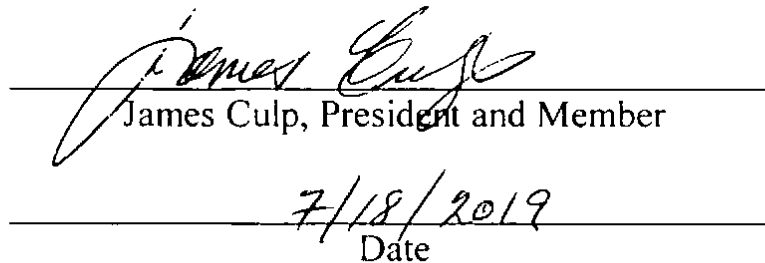 James Culp
James Culp, President and Member
7/18/2019
Date